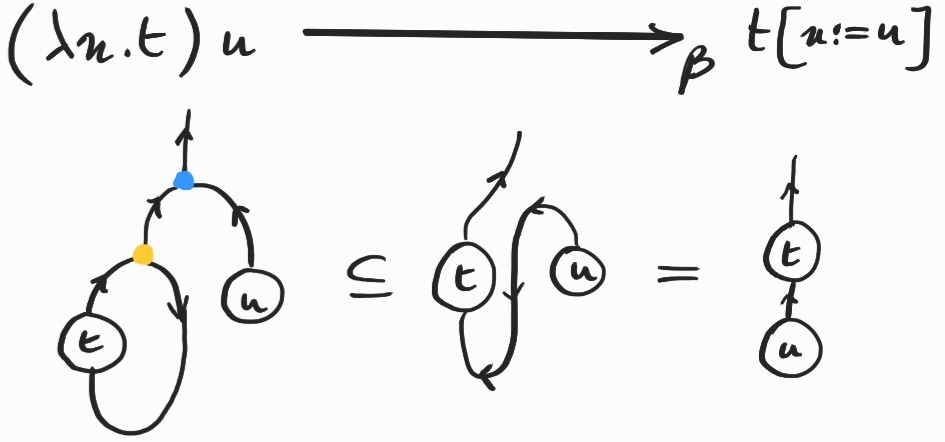 (λx.t) u ⟶β t[x:=u]
t u ⊆ t u = t
u